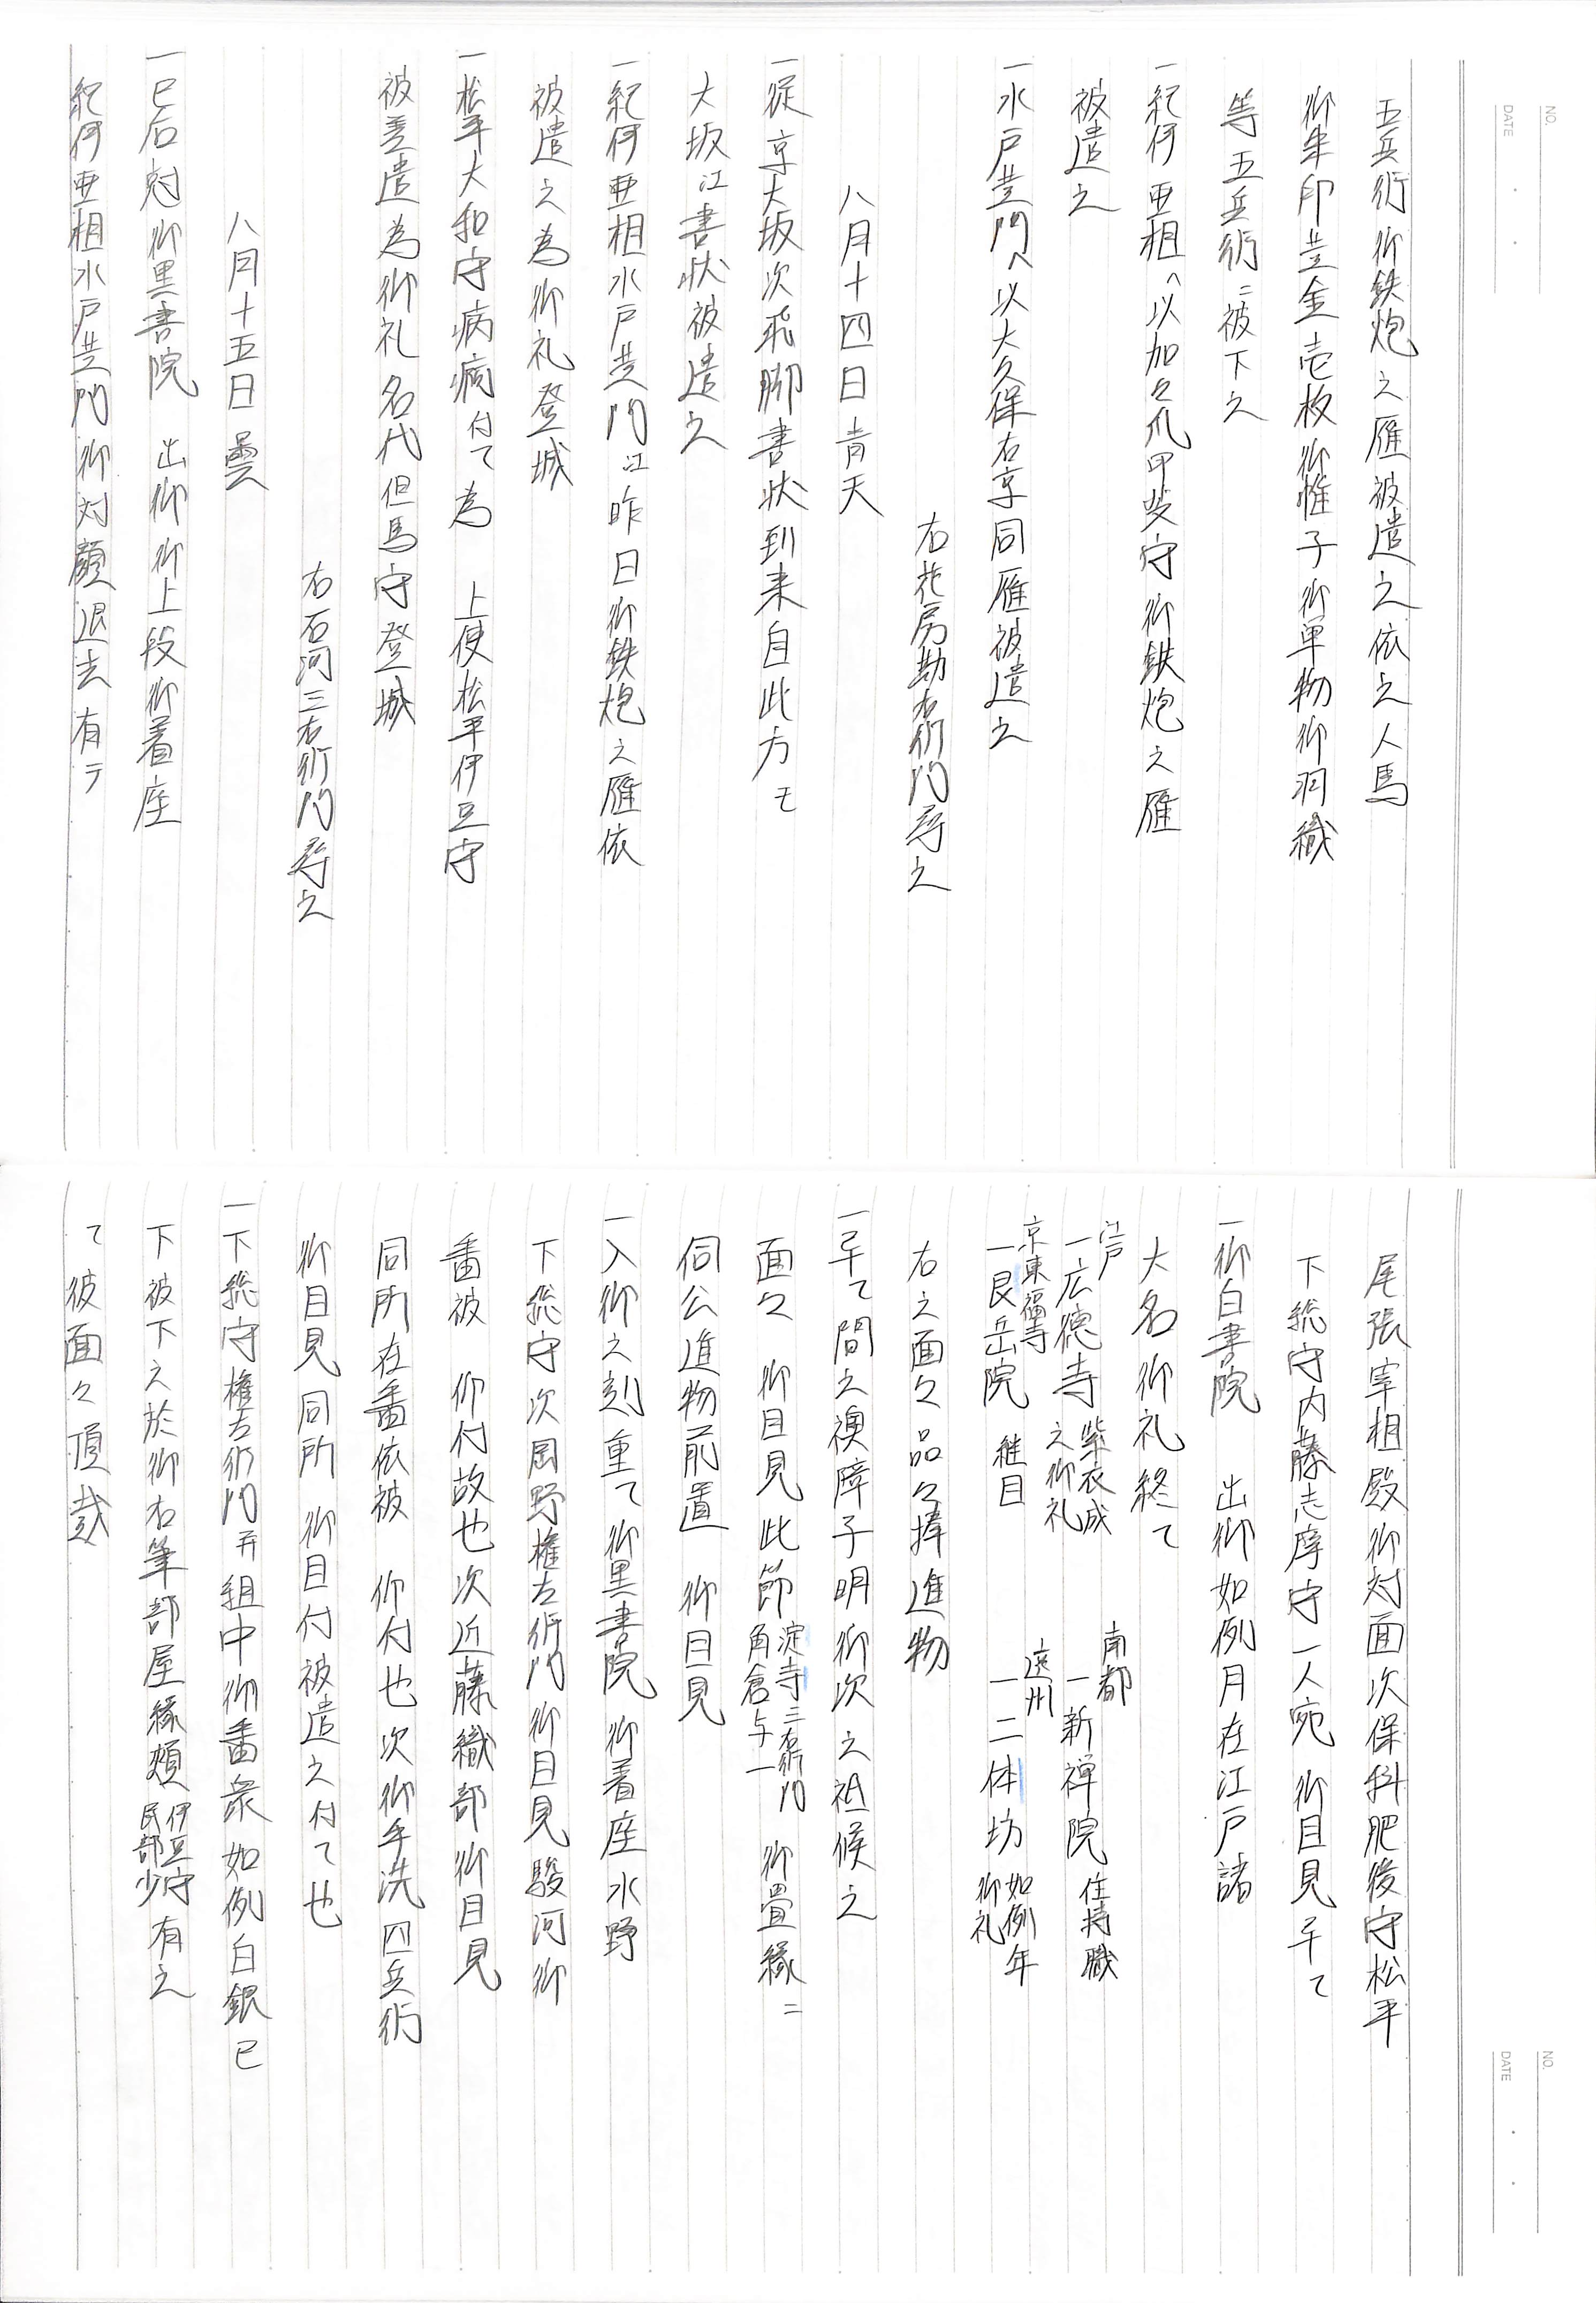 NO.
DATE
五兵衛御鉄炮之雁被遣之依之人馬
御朱印并金壱枚御帷子御単物御羽織
等五兵衛ニ被下之
一紀伊亜相へ以加々爪甲斐守御鉄炮之雁
被遣之
一水戸黄門へ以大久保右京同雁被遣之
右花房勘右衛門尋之
八月十四日 青天
一従京大坂次飛脚書状到来自此方モ
大坂江書状被遣之
一紀伊亜相水戸黄門江昨日御鉄炮之雁依
被遣之為御礼登城
一松平大和守病痾付て為 上使松平伊豆守
被差遣為御礼名代但馬守登城
右石河三右衛門尋之
八月十五日 曇
一巳后尅御黒書院 出御御上段御着座
紀伊亜相水戸黄門御対顔退去有テ
NO.
DATE
尾張宰相殿御対面次保科肥後守松平
下総守内藤志摩守一人宛 御目見早て
一御白書院 出御如例月在江戸諸
大名御礼終て
江戸
一広徳寺 紫衣成之御礼
南都
一新禅院 住持職
京東福寺
一艮岳院 継目
遠州
一二体坊 如例年御礼
右之面々品々捧進物
一早て間之襖障子明御次之祗候之
面々 御目見此節 淀寺三右衛門 角倉与一 御畳縁ニ
伺公進物前置 御目見
一入御之刻重て御黒書院 御着座水野
下総守次岡野権左衛門御目見駿河御
番被 仰付故也次近藤織部御目見
同所在番依被 仰付也次御手洗四兵衛
御目見同所 御目付被遣之付て也
一下総守権左衛門并組中御番衆如例白銀已
下被下之於御右筆部屋縁頬 伊豆守 民部少 有之
て彼面々頂戴